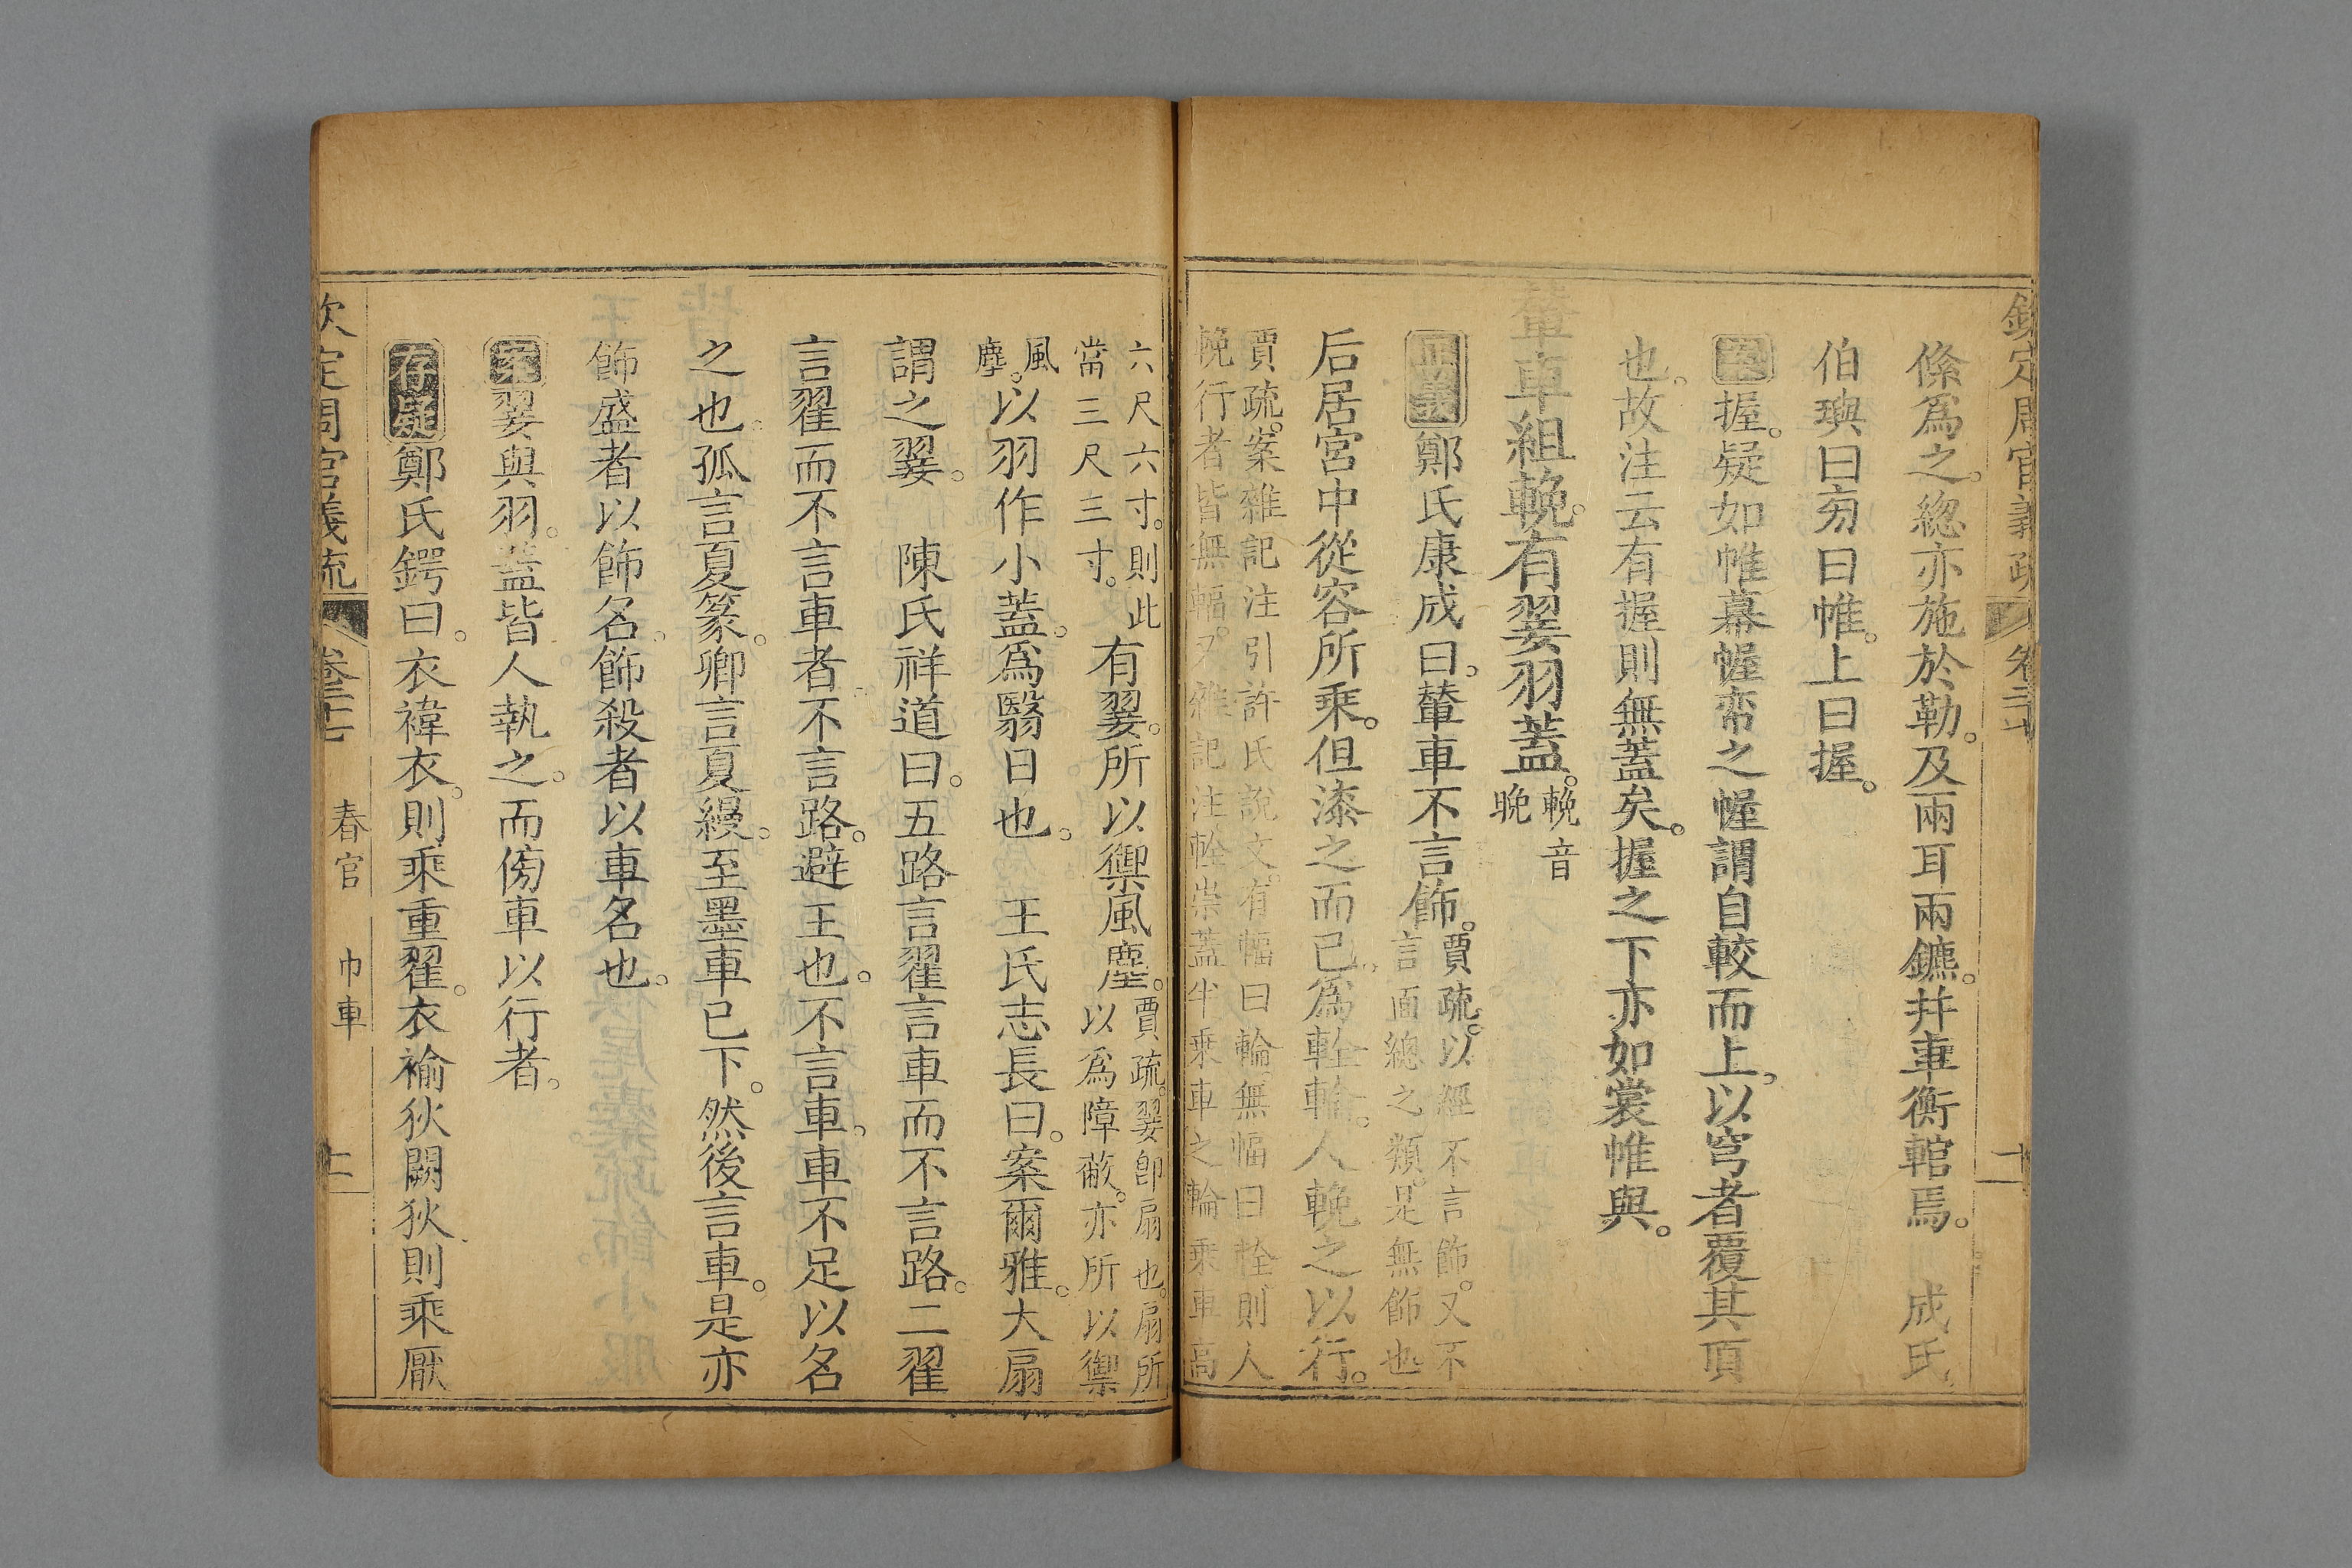 欽定周官義疏 卷二十七 十一
絛爲之。緫亦施於勒。及兩耳兩鑣。幷車衡輨焉。 成氏
伯璵曰。㫄曰帷。上曰握。
案握。疑如帷幕幄帟之幄謂自較而上。以穹者覆其頂
也。故注云有握則無蓋矣。握之下亦如裳帷與。
輦車組輓。有翣羽蓋。輓音
晚
正義鄭氏康成曰。輦車不言飾。賈疏。以經不言飾。又不
言面總之類。是無飾也
后居宮中從容所乘。但漆之而已。爲輇輪。人輓之以行。
賈疏。案雜記注引許氏說文。有輻曰輪。無輻曰輇。則人
輓行者皆無輻。又雜記注輇崇蓋半乘車之輪乘車高
六尺六寸。則此
當三尺三寸。
有翣。所以禦風塵。賈疏。翣卽扇也。扇所
以爲障蔽。亦所以禦
風
塵。
以羽作小蓋。爲翳日也。 王氏志長曰。案爾雅。大扇
謂之翣。 陳氏祥道曰。五路言翟言車而不言路。二翟
言翟而不言車者不言路。避王也。不言車。車不足以名
之也。孤言夏篆。卿言夏縵。至墨車已下。然後言車。是亦
飾盛者以飾名。飾殺者以車名也。
案翣與羽。蓋皆人執之。而傍車以行者。
存疑鄭氏鍔曰。衣褘衣。則乘重翟。衣褕狄闕狄則乘厭
欽定周官義疏 卷二十七 春官 巾車